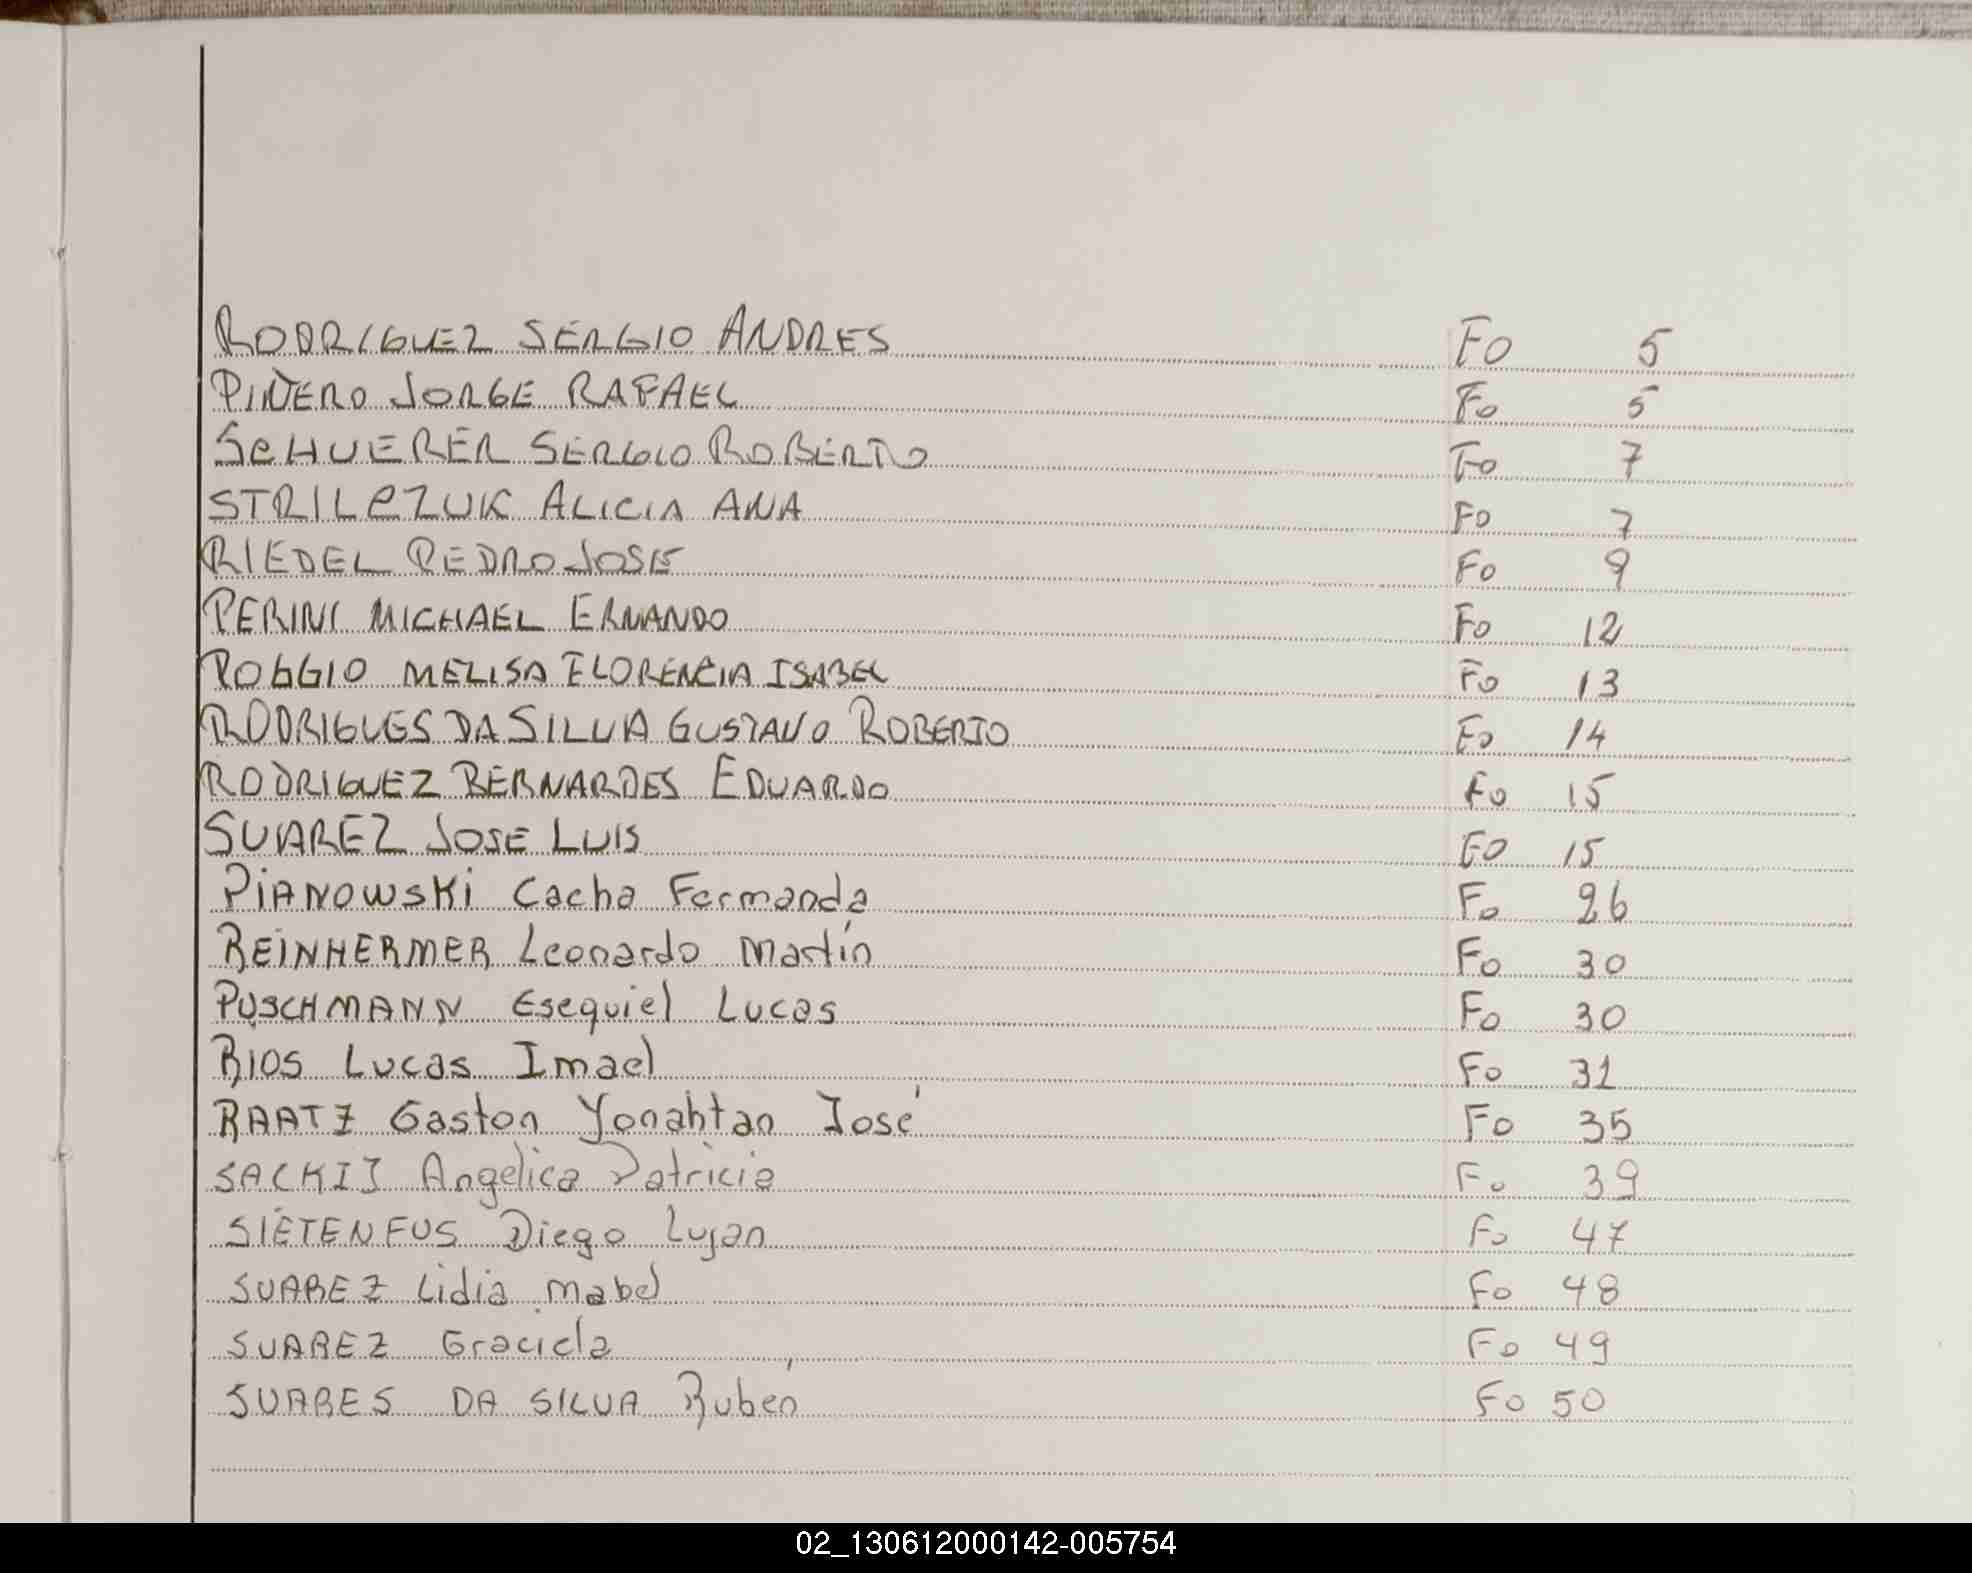 RODRIGUEZ SERGIO ANDRES Fo 5
PIÑERO JORGE RAFAEL Fo 5
SCHUERER SERGIO ROBERTO Fo 7
STRILCZUK ALICIA ANA Fo 7
RIEDEL PEDRO JOSE Fo 9
PERINI MICHAEL ERNANDO Fo 12
POGGIO MELISA FLORENCIA ISABEL Fo 13
RODRIGUES DA SILVA GUSTAVO ROBERTO Fo 14
RODRIGUEZ BERNARDES EDUARDO Fo 15
SUAREZ JOSE LUIS Fo 15
PIANOWSKI Cacha Fernanda Fo 26
REINHERMER Leonardo Martín Fo 30
PUSCHMANN Esequiel Lucas Fo 30
RIOS Lucas Imael Fo 31
RAATZ Gaston Yonahtan José Fo 35
SACKIJ Angelica Patricia Fo 39
SIETENFUS Diego Lujan Fo 47
SUAREZ Lidia Mabel Fo 48
SUAREZ Graciela Fo 49
SUARES DA SILVA Rubén Fo 50
02_130612000142-005754